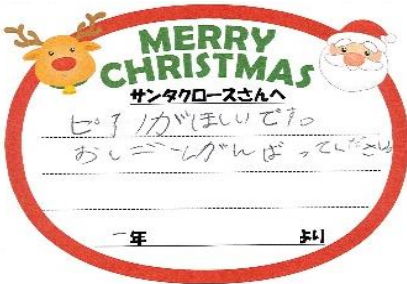 MERRY
CHRISTMAS
サンタクロースさんへ
ピアノがほしいです。
おしごとがんばってください
一年 より